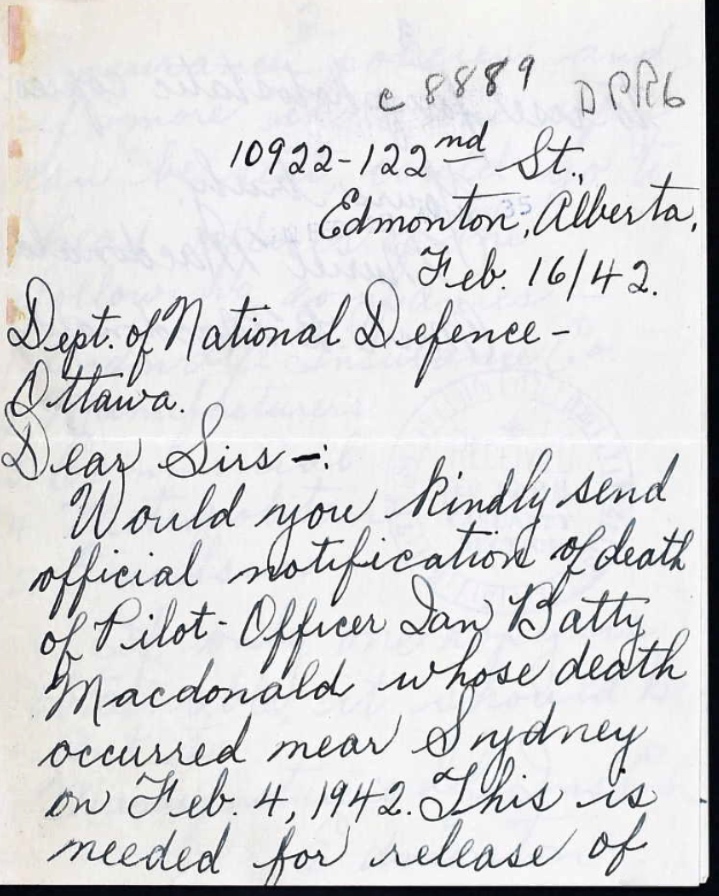 c 8889 DPR6
10922-122nd St.,
35
Edmonton, Alberta,
Feb. 16/42.
Dept. of National Defence -
Ottawa.
Dear Sirs -:
Would you kindly send
official notification of death
of Pilot-Officer Ian Batty
Macdonald whose death
occurred near Sydney
on Feb. 4, 1942. This is
needed for release of